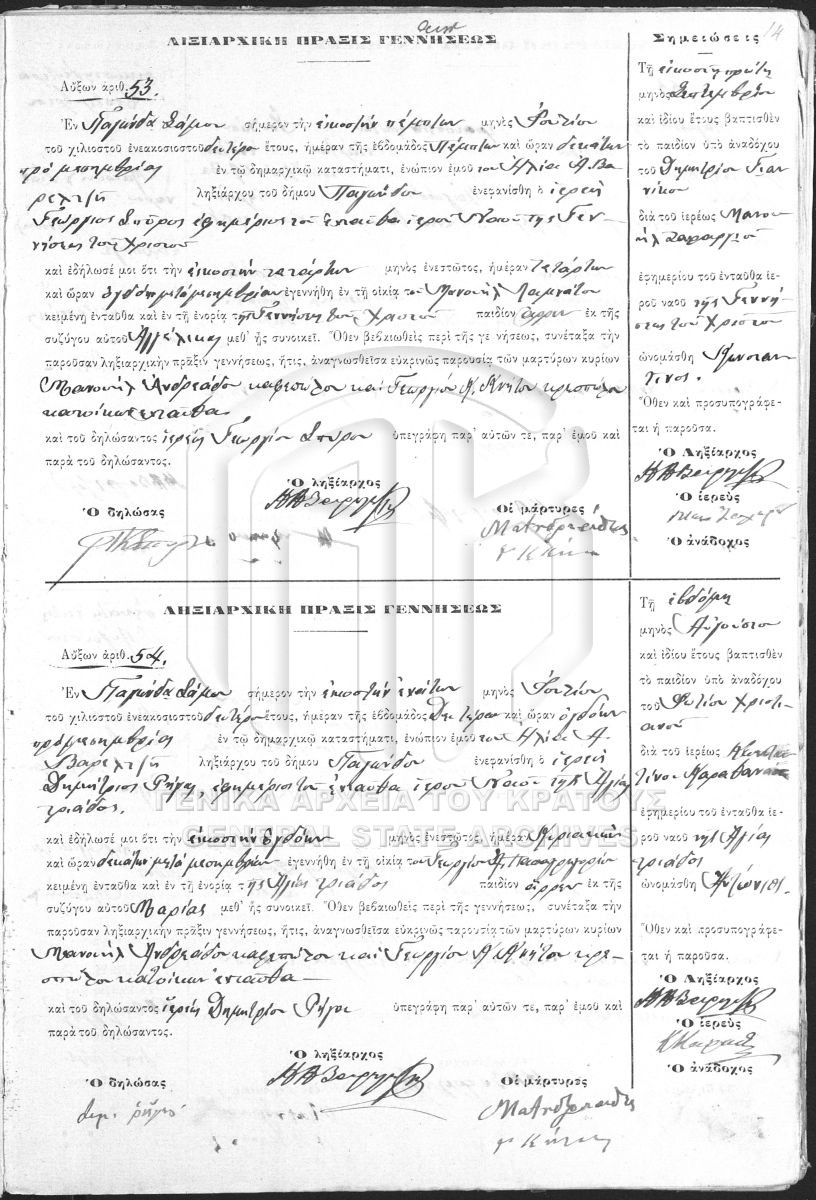 14
ΛΗΞΙΑΡΧΙΚΗ ΠΡΑΞΙΣ ΓΕΝΝΗΣΕΩΣ
Αὔξων ἀριθ. 53.
Ἐν Παγώνδα Σάμου σήμερον τὴν εἰκοστὴν πέμπτην μηνὸς Ἰουλίου
τοῦ χιλιοστοῦ ἐνεακοσιοστοῦ δευτέρου ἔτους, ἡμέραν τῆς ἑβδομάδος Πέμπτην καὶ ὥραν δεκάτην
πρὸ μεσημβρίας ἐν τῷ δημαρχικῷ καταστήματι, ἐνώπιον ἐμοῦ τοῦ Ἠλία Α. Βα
ρελτζῆ ληξιάρχου τοῦ δήμου Παγώνδου ἐνεφανίσθη ὁ ἱερεὺς
Γεώργιος Σπύρος ἐφημέριος τοῦ ἐνταῦθα ἱεροῦ Ναοῦ τῆς Γεν
νήσεως τοῦ Χριστοῦ
καὶ ἐδήλωσέ μοι ὅτι τὴν εἰκοστὴν τετάρτην μηνὸς ἐνεστῶτος, ἡμέραν Τετάρτην
καὶ ὥραν ὀγδόην μετὰ μεσημβρίαν ἐγεννήθη ἐν τῇ οἰκίᾳ τοῦ Μανουὴλ
κειμένῃ ἐνταῦθα καὶ ἐν τῇ ἐνορίᾳ τῆς Γεννήσεως τοῦ Χριστοῦ παιδίον ἄρρεν ἐκ τῆς
συζύγου αὐτοῦ Ἀγγέλικας μεθ' ἧς συνοικεῖ. Ὅθεν βεβαιωθεὶς περὶ τῆς γε νήσεως, συνέταξα τὴν
παροῦσαν ληξιαρχικὴν πρᾶξιν γεννήσεως, ἥτις, ἀναγνωσθεῖσα εὐκρινῶς παρουσίᾳ τῶν μαρτύρων κυρίων
Μανουὴλ Ἀνδρεάδου καφεπώλου καὶ Γεωργίου Κ. κρεοπώλου
κατοίκων ἐνταῦθα
καὶ τοῦ δηλώσαντος ἱερέως Γεωργίου Σπύρου ὑπεγράφη παρ' αὐτῶν τε, παρ' ἐμοῦ καὶ
παρὰ τοῦ δηλώσαντος.
Ὁ ληξίαρχος
Ὁ δηλώσας Οἱ μάρτυρες
Σημειώσεις
Τῇ εἰκοστῇ πρώτῃ
μηνὸς Σεπτεμβρίου
καὶ ἰδίου ἔτους βαπτισθὲν
τὸ παιδίον ὑπὸ ἀναδόχου
τοῦ Δημητρίου Γιαν
νίκου
διὰ τοῦ ἱερέως Μανου
ὴλ
ἐφημερίου τοῦ ἐνταῦθα ἱε-
ροῦ ναοῦ τῆς Γεννή
σεως τοῦ Χριστοῦ
ὠνομάσθη Κωνσταν
τῖνος.
Ὅθεν καὶ προσυπογράφε-
ται ἡ παροῦσα.
Ὁ Ληξίαρχος
Ὁ ἱερεὺς
Ὁ ἀνάδοχος
ΛΗΞΙΑΡΧΙΚΗ ΠΡΑΞΙΣ ΓΕΝΝΗΣΕΩΣ
Αὔξων ἀριθ. 54.
Ἐν Παγώνδα Σάμου σήμερον τὴν εἰκοστὴν ἐνάτην μηνὸς Ἰουλίου
τοῦ χιλιοστοῦ ἐνεακοσιοστοῦ δευτέρου ἔτους, ἡμέραν τῆς ἑβδομάδος Δευτέραν καὶ ὥραν ὀγδόην
πρὸ μεσημβρίας ἐν τῷ δημαρχικῷ καταστήματι, ἐνώπιον ἐμοῦ τοῦ Ἠλία Α.
Βαρελτζῆ ληξιάρχου τοῦ δήμου Παγώνδου ἐνεφανίσθη ὁ ἱερεὺς
Δημήτριος Ρήγας ἐφημέριος τοῦ ἐνταῦθα ἱεροῦ Ναοῦ τῆς Ἁγίας
Τριάδος.
ΓΕΝΙΚΑ ΑΡΧΕΙΑ ΤΟΥ ΚΡΑΤΟΥΣ
GENERAL STATE ARCHIVES
καὶ ἐδήλωσέ μοι ὅτι τὴν εἰκοστὴν ὀγδόην μηνὸς ἐνεστῶτος, ἡμέραν Κυριακὴν
καὶ ὥραν δεκάτην μετὰ μεσημβρίαν ἐγεννήθη ἐν τῇ οἰκίᾳ τοῦ Γεωργίου Παπαγρηγορίου
κειμένῃ ἐνταῦθα καὶ ἐν τῇ ἐνορίᾳ τῆς Ἁγίας Τριάδος παιδίον ἄρρεν ἐκ τῆς
συζύγου αὐτοῦ Μαρίας μεθ' ἧς συνοικεῖ. Ὅθεν βεβαιωθεὶς περὶ τῆς γεννήσεως, συνέταξα τὴν
παροῦσαν ληξιαρχικὴν πρᾶξιν γεννήσεως, ἥτις, ἀναγνωσθεῖσα εὐκρινῶς παρουσίᾳ τῶν μαρτύρων κυρίων
Μανουὴλ Ἀνδρεάδου καφεπώλου καὶ Γεωργίου Κ. κρε
οπώλου κατοίκων ἐνταῦθα
καὶ τοῦ δηλώσαντος ἱερέως Δημητρίου Ρήγα ὑπεγράφη παρ' αὐτῶν τε, παρ' ἐμοῦ καὶ
παρὰ τοῦ δηλώσαντος.
Ὁ ληξίαρχος
Ὁ δηλώσας Οἱ μάρτυρες
Τῇ ἑβδόμῃ
μηνὸς Αὐγούστου
καὶ ἰδίου ἔτους βαπτισθὲν
τὸ παιδίον ὑπὸ ἀναδόχου
τοῦ Φωτίου Χριστι
ανοῦ
διὰ τοῦ ἱερέως Κωνσταν
τίνου
ἐφημερίου τοῦ ἐνταῦθα ἱε-
ροῦ ναοῦ τῆς Ἁγίας
Τριάδος
ὠνομάσθη Ἀντώνιος.
Ὅθεν καὶ προσυπογράφε-
ται ἡ παροῦσα.
Ὁ Ληξίαρχος
Ὁ ἱερεὺς
Ὁ ἀνάδοχος